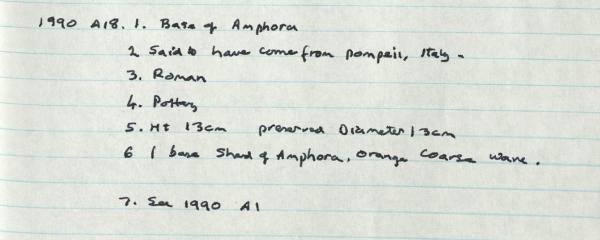 1990 A18. 1. Base of Amphora
2 Said to have come from Pompeii, Italy -
3. Roman
4. Pottery
5. Ht 13cm preserved Diameter 13cm
6 1 base Sherd of Amphora. Orange Coarse Ware.
7. See 1990 A1